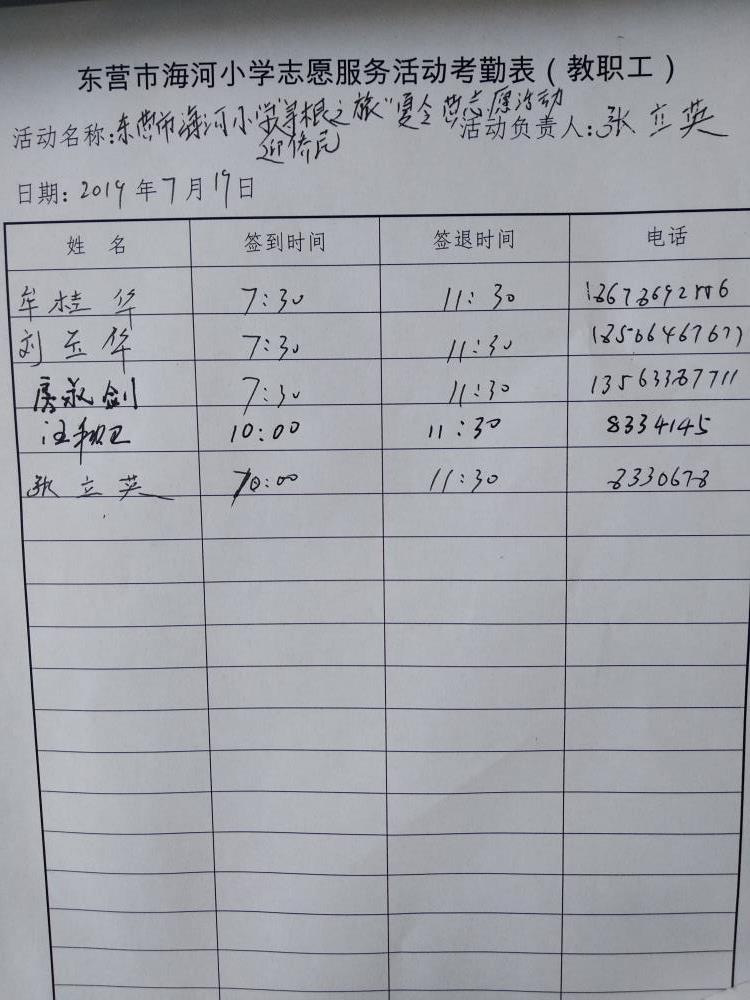 东营市海河小学志愿服务活动考勤表（教职工）
活动名称:东营市海河小学"寻根之旅"夏令营志愿活动 活动负责人:张立英
迎侨民
日期: 2019年7月19日
姓 名 签到时间 签退时间 电话
牟桂华 7:30 11:30
刘玉华 7:30 11:30
房永剑 7:30 11:30 13563387711
汪 10:00 11:30 8334145
张立英 10:00 11:30 8330678